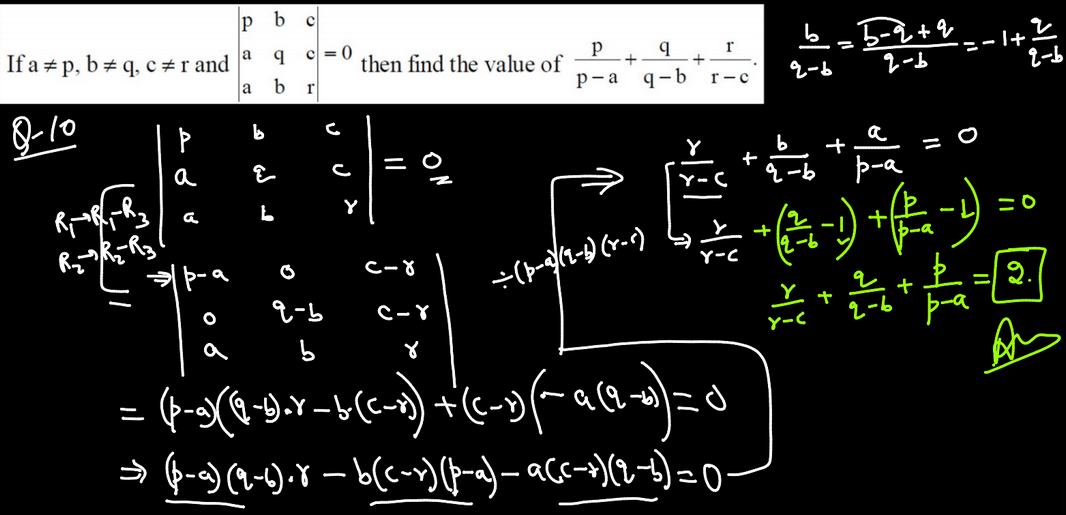 If a ≠ p, b ≠ q, c ≠ r and |p b c; a q c; a b r| = 0 then find the value of p/(p − a) + q/(q − b) + r/(r − c).
b/(q-b) = (b-q+q)/(q-b) = -1 + q/(q-b)
Q-10
|p b c; a q c; a b r| = 0
R₁→R₁-R₃
R₂→R₂-R₃
⇒ |p-a 0 c-r; 0 q-b c-r; a b r|
= (p-a)((q-b).r - b.(c-r)) + (c-r)(-a(q-b)) = 0
⇒ (p-a)(q-b).r - b(c-r)(p-a) - a(c-r)(q-b) = 0
÷(p-a)(q-b)(r-c)
⇒ r/(r-c) + b/(q-b) + a/(p-a) = 0
⇒ r/(r-c) + (q/(q-b) - 1) + (p/(p-a) - 1) = 0
r/(r-c) + q/(q-b) + p/(p-a) = 2.